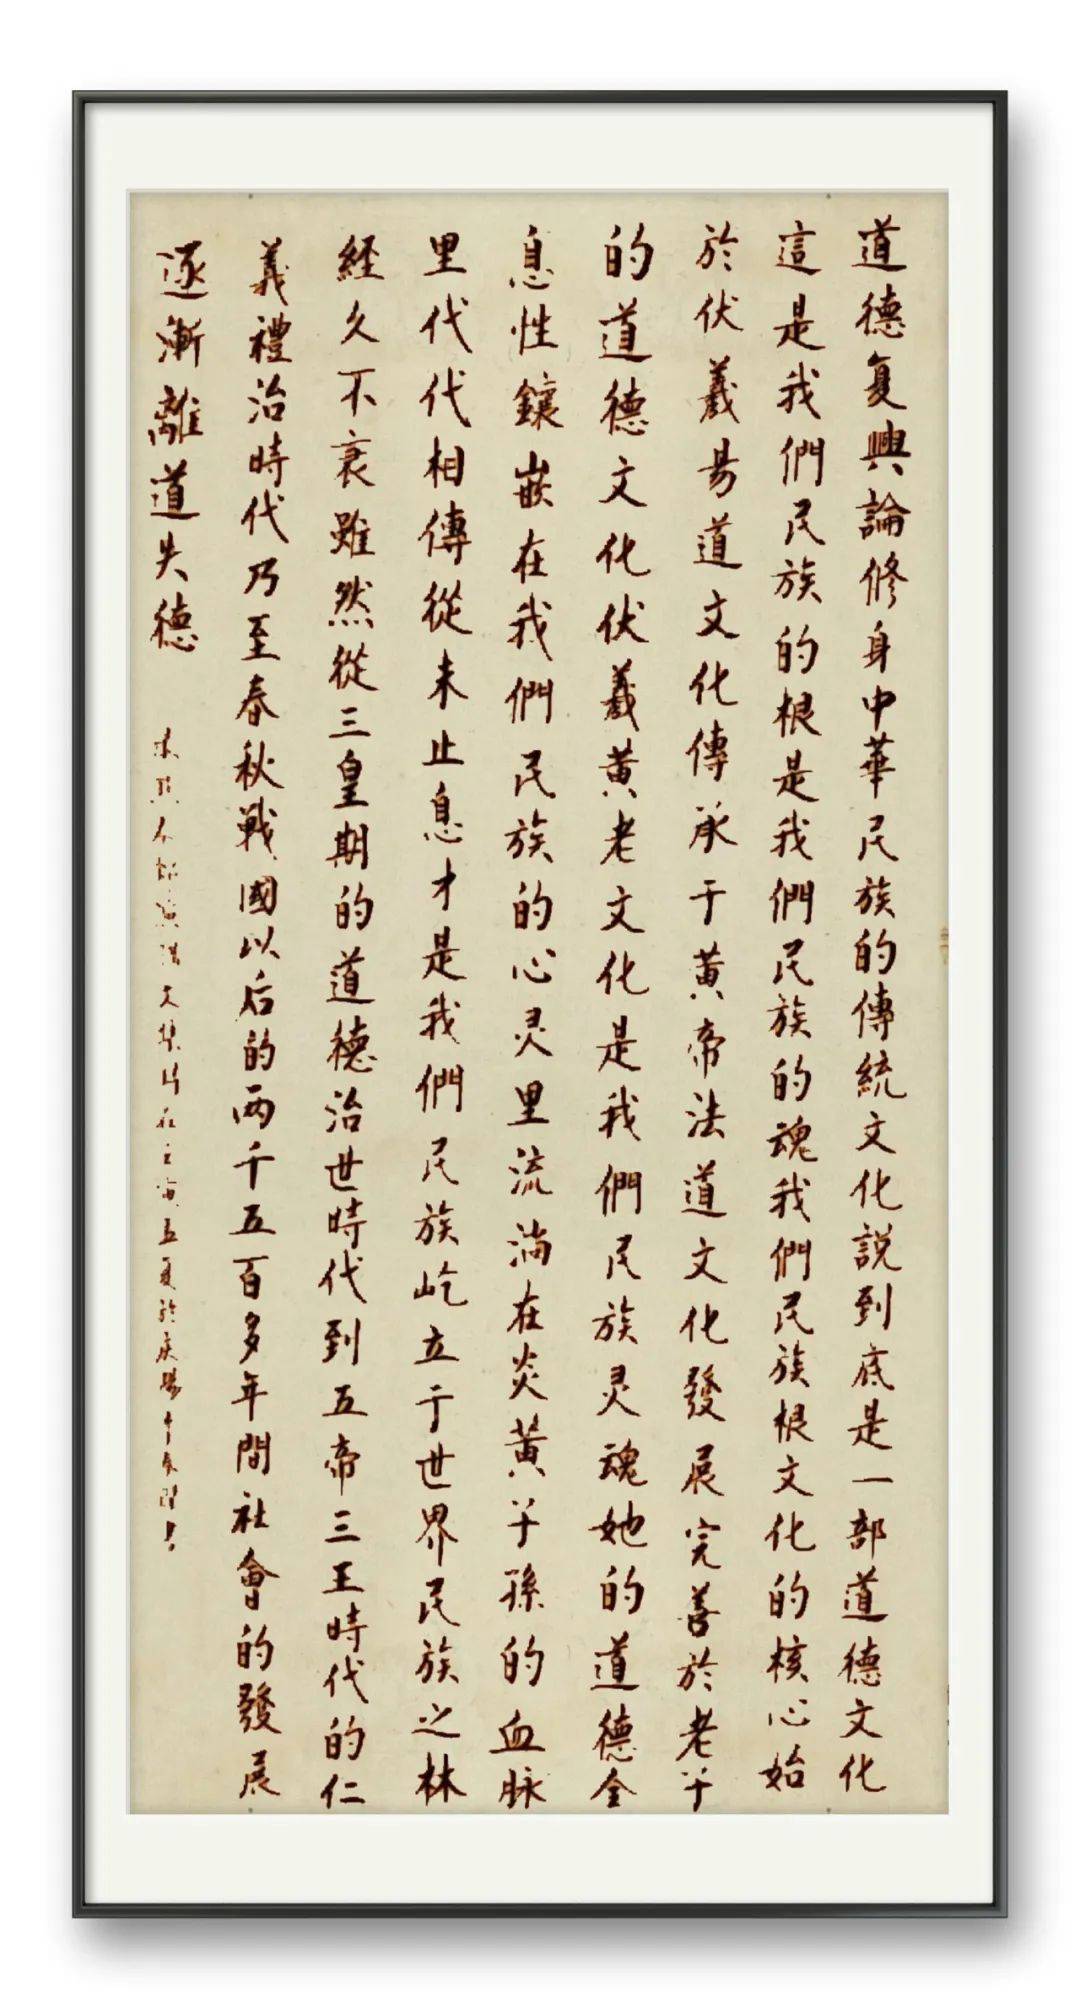 道德复興論修身中華民族的傳統文化説到底是一部道德文化
這是我們民族的根是我們民族的魂我們民族根文化的核心始
於伏羲易道文化傳承于黄帝法道文化發展完善於老子
的道德文化伏羲黄老文化是我們民族灵魂她的道德全
息性鑲嵌在我們民族的心灵里流淌在炎黄子孫的血脉
里代代相傳從未止息才是我們民族屹立于世界民族之林
經久不衰雖然從三皇期的道德治世時代到五帝三王時代的仁
義禮治時代乃至春秋戰國以后的兩千五百多年間社會的發展
逐漸離道失德
文集 五夏於 書